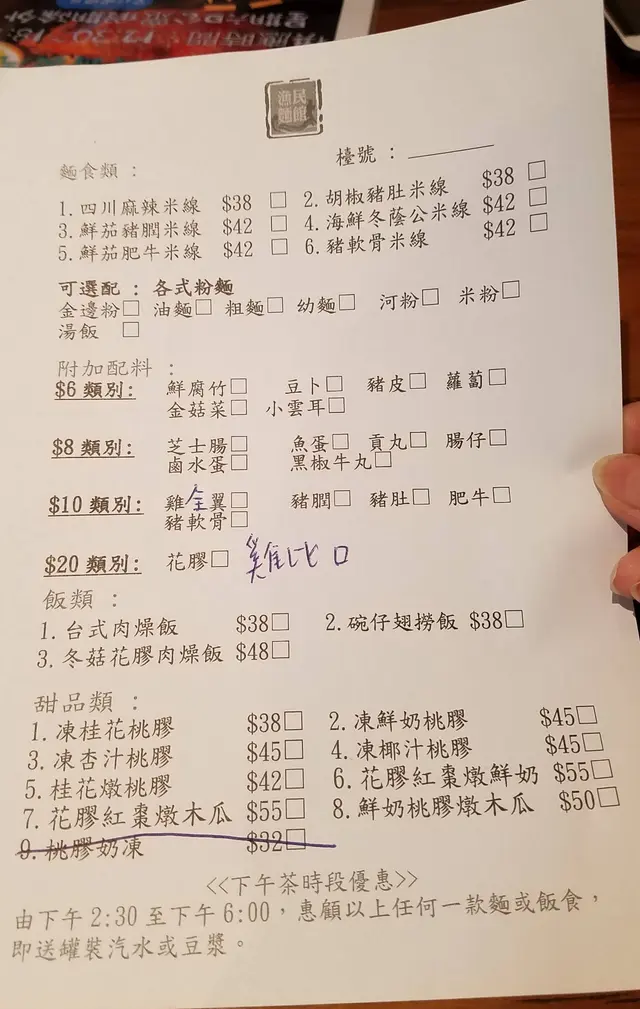 漁民
麵館
麵食類 :
檯號 : ________
1.四川麻辣米線 $38 □ 2.胡椒豬肚米線 $38 □
3.鮮茄豬膶米線 $42 □ 4.海鮮冬蔭公米線 $42 □
5.鮮茄肥牛米線 $42 □ 6.豬軟骨米線 $42 □
可選配 : 各式粉麵
金邊粉□ 油麵□ 粗麵□ 幼麵□ 河粉□ 米粉□
湯飯 □
附加配料 :
$6 類別: 鮮腐竹□ 豆卜□ 豬皮□ 蘿蔔□
金菇菜□ 小雲耳□
$8 類別: 芝士腸□ 魚蛋□ 貢丸□ 腸仔□
鹵水蛋□ 黑椒牛丸□
$10 類別: 雞全翼□ 豬膶□ 豬肚□ 肥牛□
豬軟骨□
$20 類別: 花膠□ 雞比□
飯類 :
1.台式肉燥飯 $38□ 2.碗仔翅撈飯 $38□
3.冬菇花膠肉燥飯 $48□
甜品類 :
1.凍桂花桃膠 $38□ 2.凍鮮奶桃膠 $45□
3.凍杏汁桃膠 $45□ 4.凍椰汁桃膠 $45□
5.桂花燉桃膠 $42□ 6.花膠紅棗燉鮮奶 $55□
7.花膠紅棗燉木瓜 $55□ 8.鮮奶桃膠燉木瓜 $50□
9.桃膠奶凍 $32□
<<下午茶時段優惠>>
由下午 2:30 至下午 6:00，惠顧以上任何一款麵或飯食，
即送罐裝汽水或豆漿。